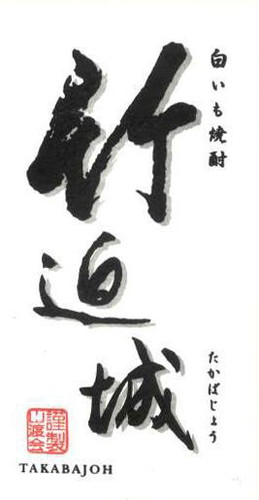 白いも焼酎
竹迫城
たかばじょう
謹製
渡会
TAKABAJOH